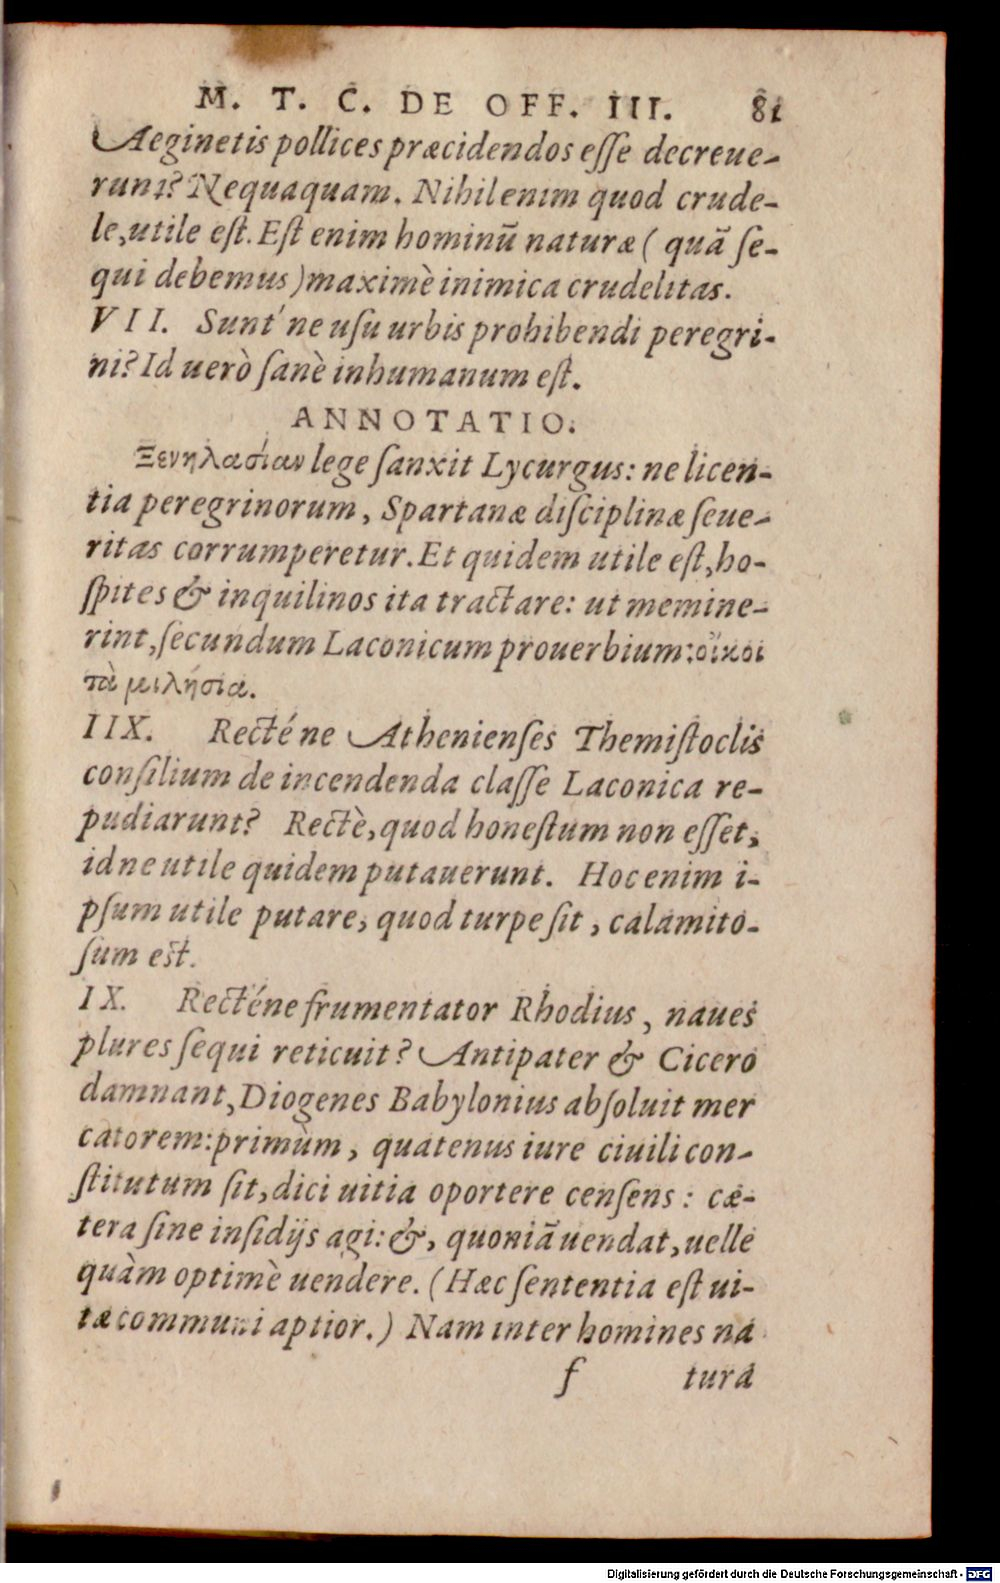 M. T. C. DE OFF. III. 81
Aeginetis pollices præcidendos eſſe decreue-
runt? Nequaquam. Nihil enim quod crude-
le, utile eſt. Eſt enim hominū naturæ ( quā ſe-
qui debemus ) maximè inimica crudelitas.
VII. Sunt' ne uſu urbis prohibendi peregri-
ni? Id uerò ſanè inhumanum eſt.
ANNOTATIO.
Ξενηλασίαν lege ſanxit Lycurgus: ne licen-
tia peregrinorum, Spartanæ diſciplinæ ſeue-
ritas corrumperetur. Et quidem utile eſt, ho-
ſpites & inquilinos ita tractare: ut memine-
rint, ſecundum Laconicum prouerbium: οἴκοι
τὰ μιλήσια.
IIX. Recténe Athenienſes Themiſtoclis
conſilium de incendenda claſſe Laconica re-
pudiarunt? Rectè, quod honeſtum non eſſet,
id ne utile quidem putauerunt. Hoc enim i-
pſum utile putare, quod turpe ſit, calamito-
ſum eſt.
IX. Recténe frumentator Rhodius, naues
plures ſequi reticuit? Antipater & Cicero
damnant, Diogenes Babylonius abſoluit mer
catorem: primùm, quatenus iure ciuili con-
ſtitutum ſit, dici uitia oportere cenſens: cæ-
tera ſine inſidijs agi: &, quoniā uendat, uelle
quàm optimè uendere. (Hæc ſententia eſt ui-
tæ communi aptior.) Nam inter homines na
f tura
Digitalisierung gefördert durch die Deutsche Forschungsgemeinschaft - DFG